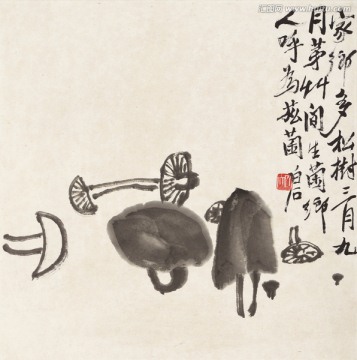 家鄉多松樹三月九
月茅艸間生菌鄉
人呼為菇菌
白石